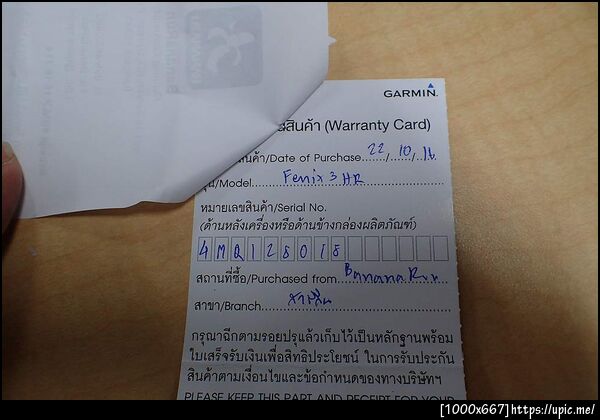 GARMIN
สินค้า (Warranty Card)
สินค้า/Date of Purchase......22/10/16
รุ่น/Model......Fenix 3 HR
หมายเลขสินค้า/Serial No.
(ด้านหลังเครื่องหรือด้านข้างกล่องผลิตภัณฑ์)
4MQ128018
สถานที่ซื้อ/Purchased from Banana Run
สาขา/Branch
กรุณาฉีกตามรอยปรุแล้วเก็บไว้เป็นหลักฐานพร้อม
ใบเสร็จรับเงินเพื่อสิทธิประโยชน์ ในการรับประกัน
สินค้าตามเงื่อนไขและข้อกำหนดของทางบริษัทฯ
PLEASE KEEP THIS PART AND RECEIPT FOR YOUR
[1000x667]https://upic.me/